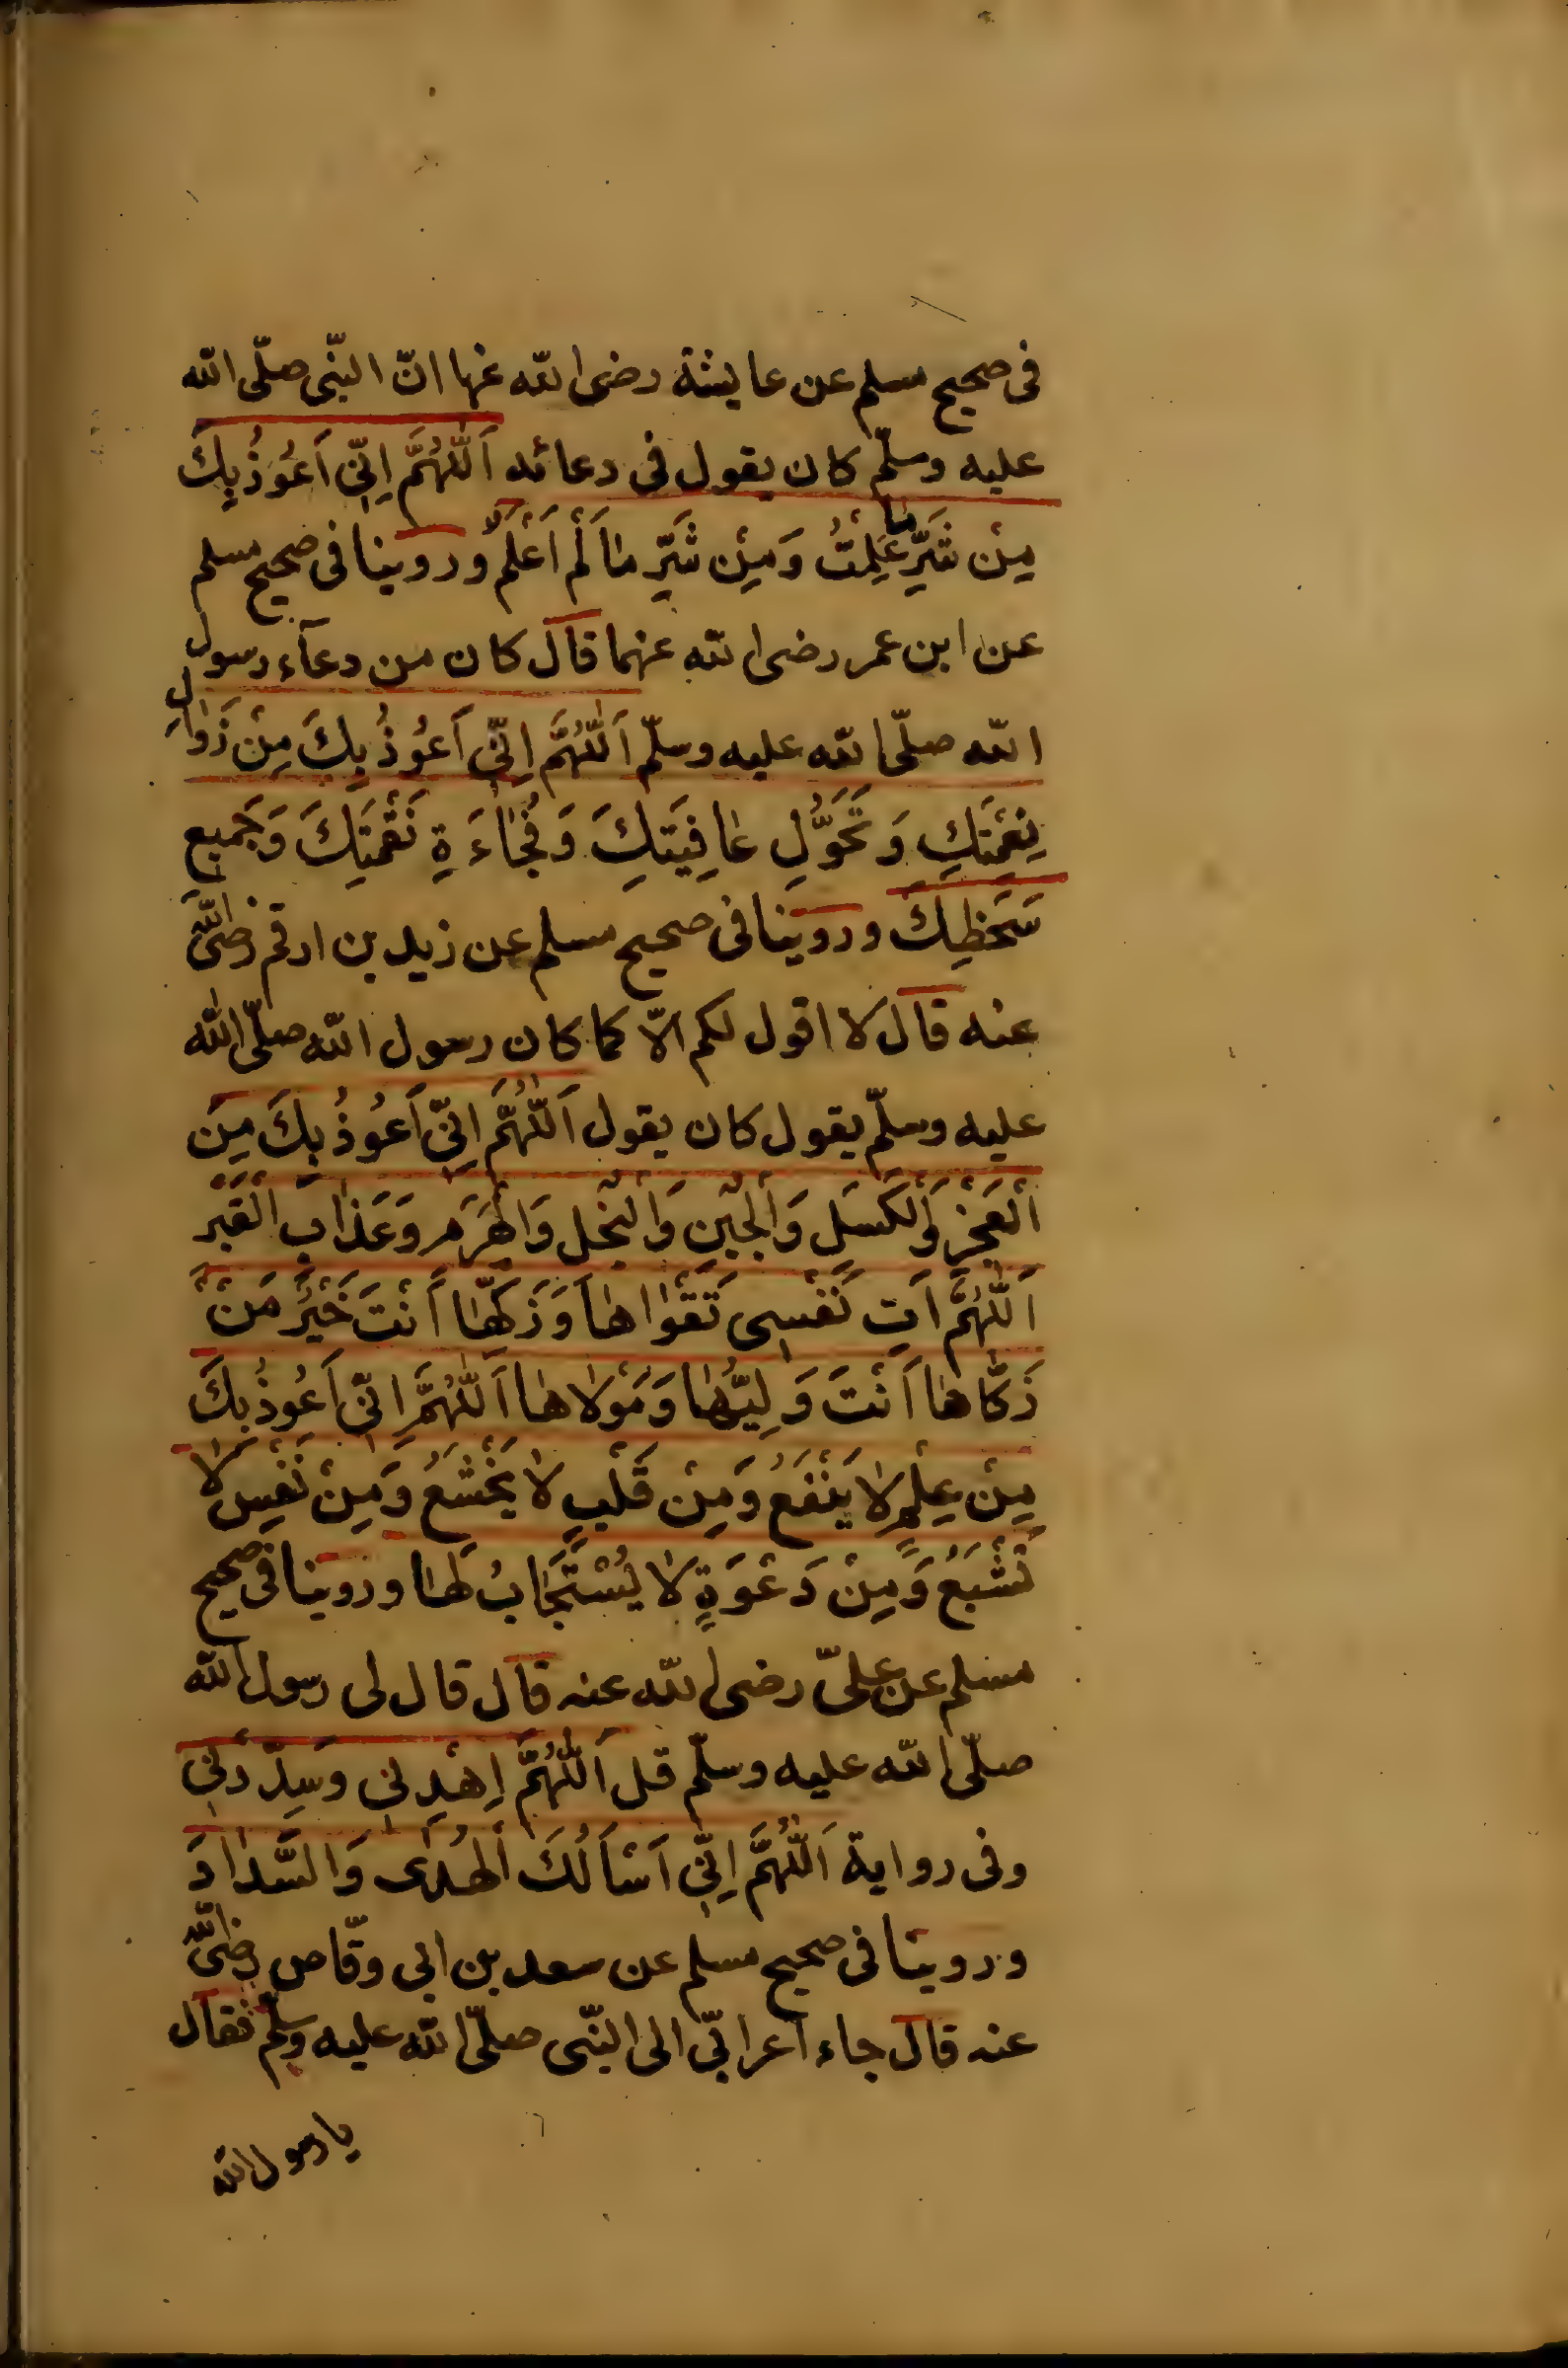 فى صحيح مسلم عن عايشة رضى الله عنها انّ النّبى صلّى الله
عليه وسلّم كان يقول فى دعائه اَللّٰهُمَّ اِنِّى اَعُوْذُ بِكَ
مِنْ شَرِّ مَا عَلِمْتُ وَمِنْ شَرِّ مَا لَمْ اَعْلَمْ وروينا فى صحيح مسلم
عن ابن عمر رضى الله عنهما قال كان من دعآء رسول
الله صلّى الله عليه وسلّم اَللّٰهُمَّ اِنِّى اَعُوْذُ بِكَ مِنْ زَوَالِ
نِعْمَتِكَ وَتَحَوُّلِ عَافِيَتِكَ وَفُجَاءَةِ نَقْمَتِكَ وَجَمِيع
سَخَطِكَ وروينا فى صحيح مسلم عن زيد بن ارقم رضى الله
عنه قال لا اقول لكم الّا كما كان رسول الله صلّى الله
عليه وسلّم يقول كان يقول اَللّٰهُمَّ اِنِّى اَعُوْذُ بِكَ مِنَ
الْعَجْزِ وَالْكَسَلِ وَالْجُبْنِ وَالْبُخْلِ وَالْهَرَمِ وَعَذَابِ الْقَبْرِ
اَللّٰهُمَّ اٰتِ نَفْسِى تَقْوَاهَا وَزَكِّهَا اَنْتَ خَيْرُ مَنْ
زَكَّاهَا اَنْتَ وَلِيُّهَا وَمَوْلَاهَا اَللّٰهُمَّ اِنِّى اَعُوْذُ بِكَ
مِنْ عِلْمٍ لَا يَنْفَعُ وَمِنْ قَلْبٍ لَا يَخْشَعُ وَمِنْ نَفْسٍ لَا
تَشْبَعُ وَمِنْ دَعْوَةٍ لَا يُسْتَجَابُ لَهَا وروينا فى صحيح
مسلم عن علىّ رضى الله عنه قال قال لى رسول الله
صلّى الله عليه وسلّم قل اَللّٰهُمَّ اِهْدِنِى وَسَدِّدْنِى
وفى رواية اَللّٰهُمَّ اِنِّى اَسْاَلُكَ الْهُدٰى وَالسَّدَادَ
وروينا فى صحيح مسلم عن سعد بن ابى وقّاص رضى الله
عنه قال جاء اعرابىّ الى النّبى صلّى الله عليه وسلّم فقال
يا رسول الله